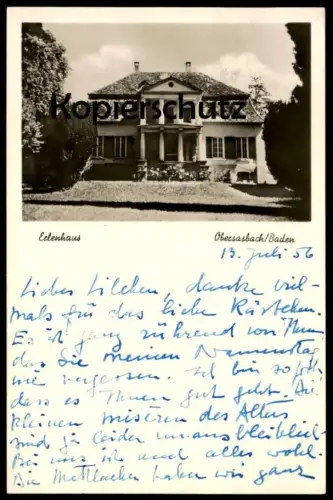 Kopierschütz
Erlenhaus Obersasbach/Baden
13. Juli 56
Liebes Lilchen, danke viel-
mals für das liebe Kärtchen.
Es ist ganz rührend von Ihnen
das Sie meinen Namenstag
nie vergessen. Ich bin so froh
dass es Ihnen gut geht. Die
kleinen miseren des Alters
sind ja leider unausbleiblich.
Bei uns ist auch alles wohl.
Die haben wir ganz